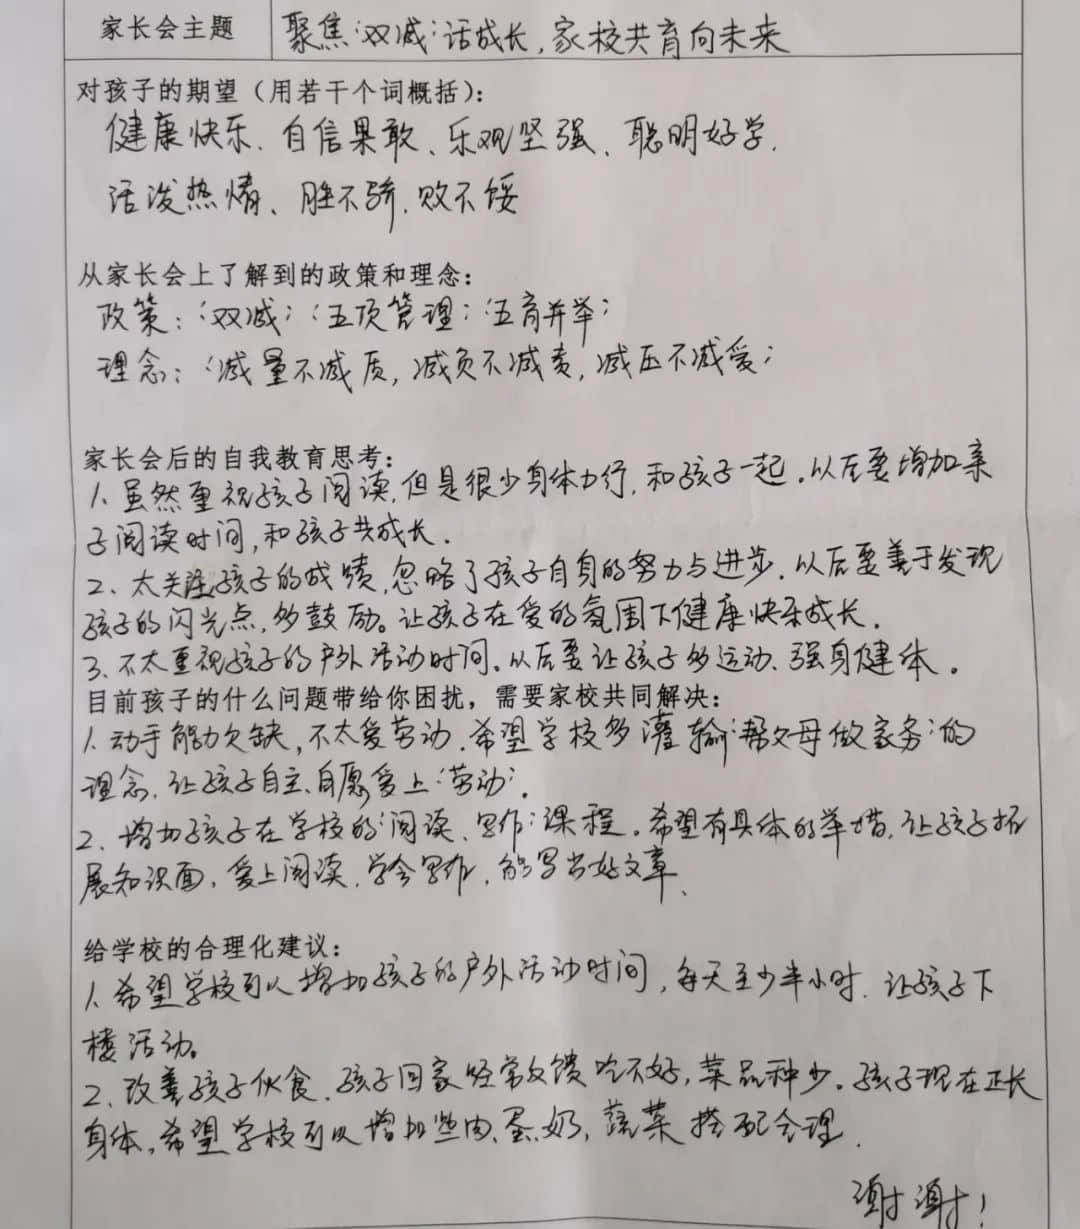 家长会主题 聚焦“双减”话成长,家校共育向未来
对孩子的期望（用若干个词概括）：
健康快乐、自信果敢、乐观坚强、聪明好学、
活泼热情、胜不骄、败不馁
从家长会上了解到的政策和理念：
政策：“双减”“五项管理”“五育并举”
理念：“减量不减质，减负不减责，减压不减爱”
家长会后的自我教育思考：
1、虽然重视孩子阅读，但是很少身体力行，和孩子一起。以后要增加亲
子阅读时间，和孩子共成长。
2、太关注孩子的成绩，忽略了孩子自身的努力与进步，以后要善于发现
孩子的闪光点，多鼓励。让孩子在爱的氛围下健康快乐成长。
3、不太重视孩子的户外活动时间。以后要让孩子多运动、强身健体。
目前孩子的什么问题带给你困扰，需要家校共同解决：
1、动手能力欠缺，不太爱劳动。希望学校多灌输“帮父母做家务”的
理念，让孩子自主、自愿爱上“劳动”。
2、增加孩子在学校的“阅读、写作”课程。希望有具体的举措，让孩子拓
展知识面，爱上阅读，学会写作，能写出好文章、
给学校的合理化建议：
1、希望学校可以增加孩子的户外活动时间，每天至少半小时，让孩子下
楼活动。
2、改善孩子伙食，孩子回家经常反馈吃不好，菜品种少。孩子现在正长
身体，希望学校可以增加些肉、蛋、奶，蔬菜搭配合理。
谢谢！